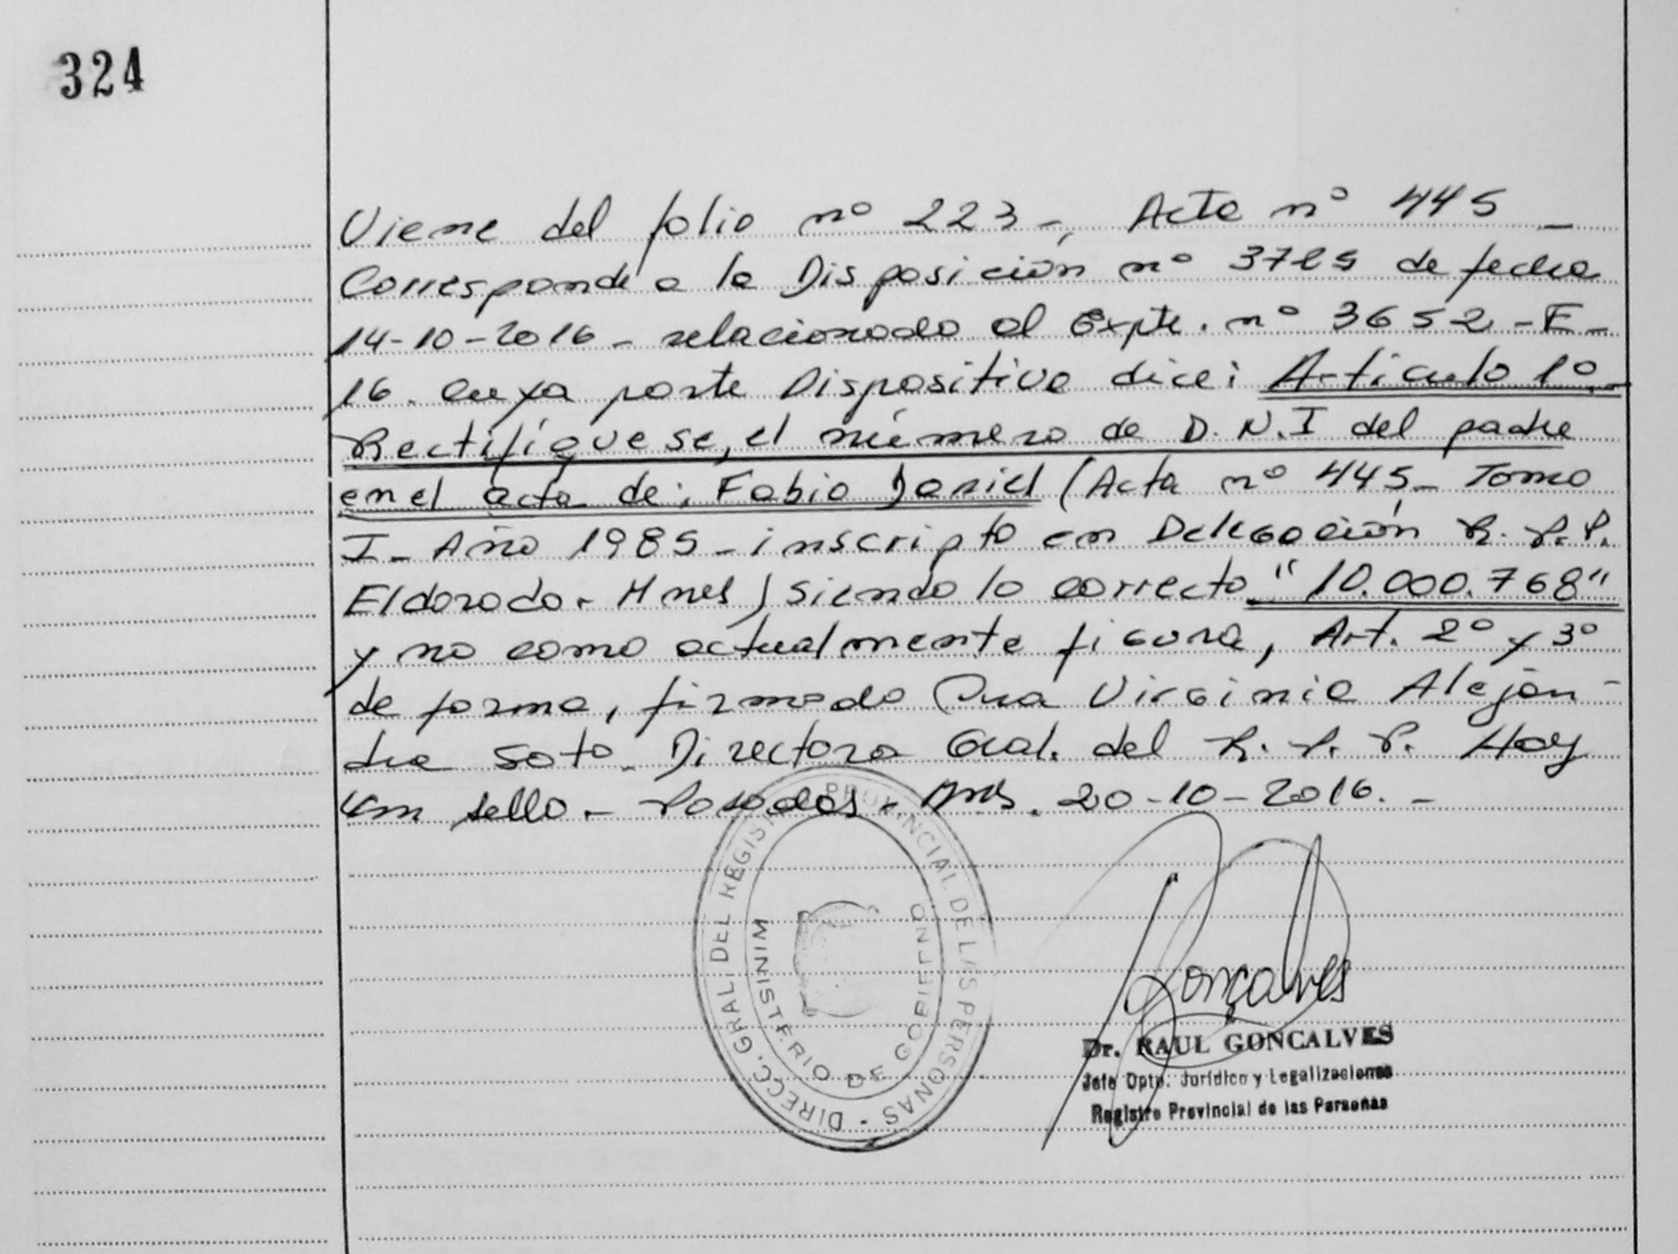 324
Viene del folio nº 223 -, Acta nº 445 -
Corresponde a la Disposición nº de fecha
14-10-2016 - relacionado al Expte. nº 3652 - E -
16. cuya parte Dispositiva dice: Artículo 1º.-
Rectifíquese, el número de D.N.I del padre
en el acta de: Fabio Daniel (Acta nº 445 - Tomo
I - Año 1985 - inscripto en Delegación R.P.P.
Eldorado - Mnes) siendo lo correcto "10.000.768"
y no como actualmente figura, Art. 2º y 3º
de forma, firmado Dra Virginia Alejan-
dra Soto - Directora Gral. del R.P.P. Hay
un sello. - Posadas - Mnes. 20-10-2016. -
DIRECC. GRAL. DEL REGISTRO PROVINCIAL DE LAS PERSONAS -
MINISTERIO DE GOBIERNO
Gonçalves
Dr. RAUL GONCALVES
Jefe Dpto. Jurídico y Legalizaciones
Registro Provincial de las Personas